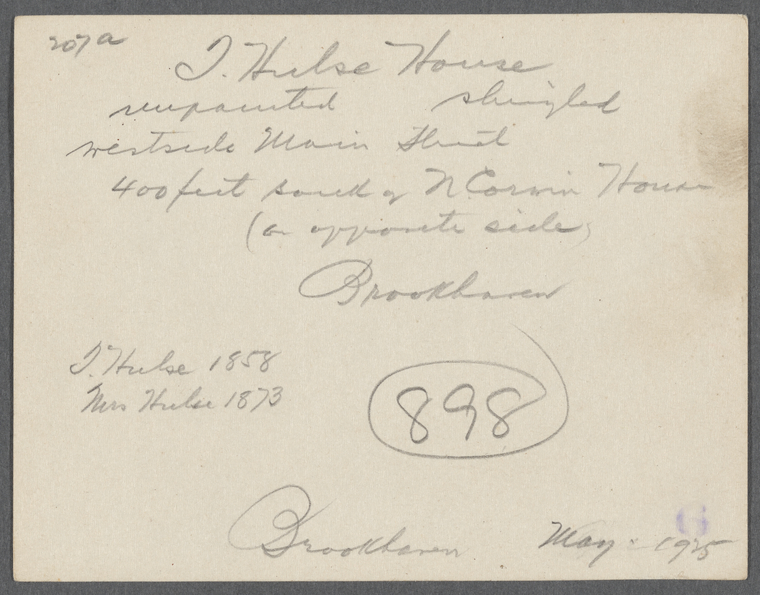 207a
T. Hulse House
unpainted shingled
westside Main Street
400 feet south of N. Corwin House
(on opposite side)
Brookhaven
T. Hulse 1858
Mrs Hulse 1873
898
6
Brookhaven May - 1925